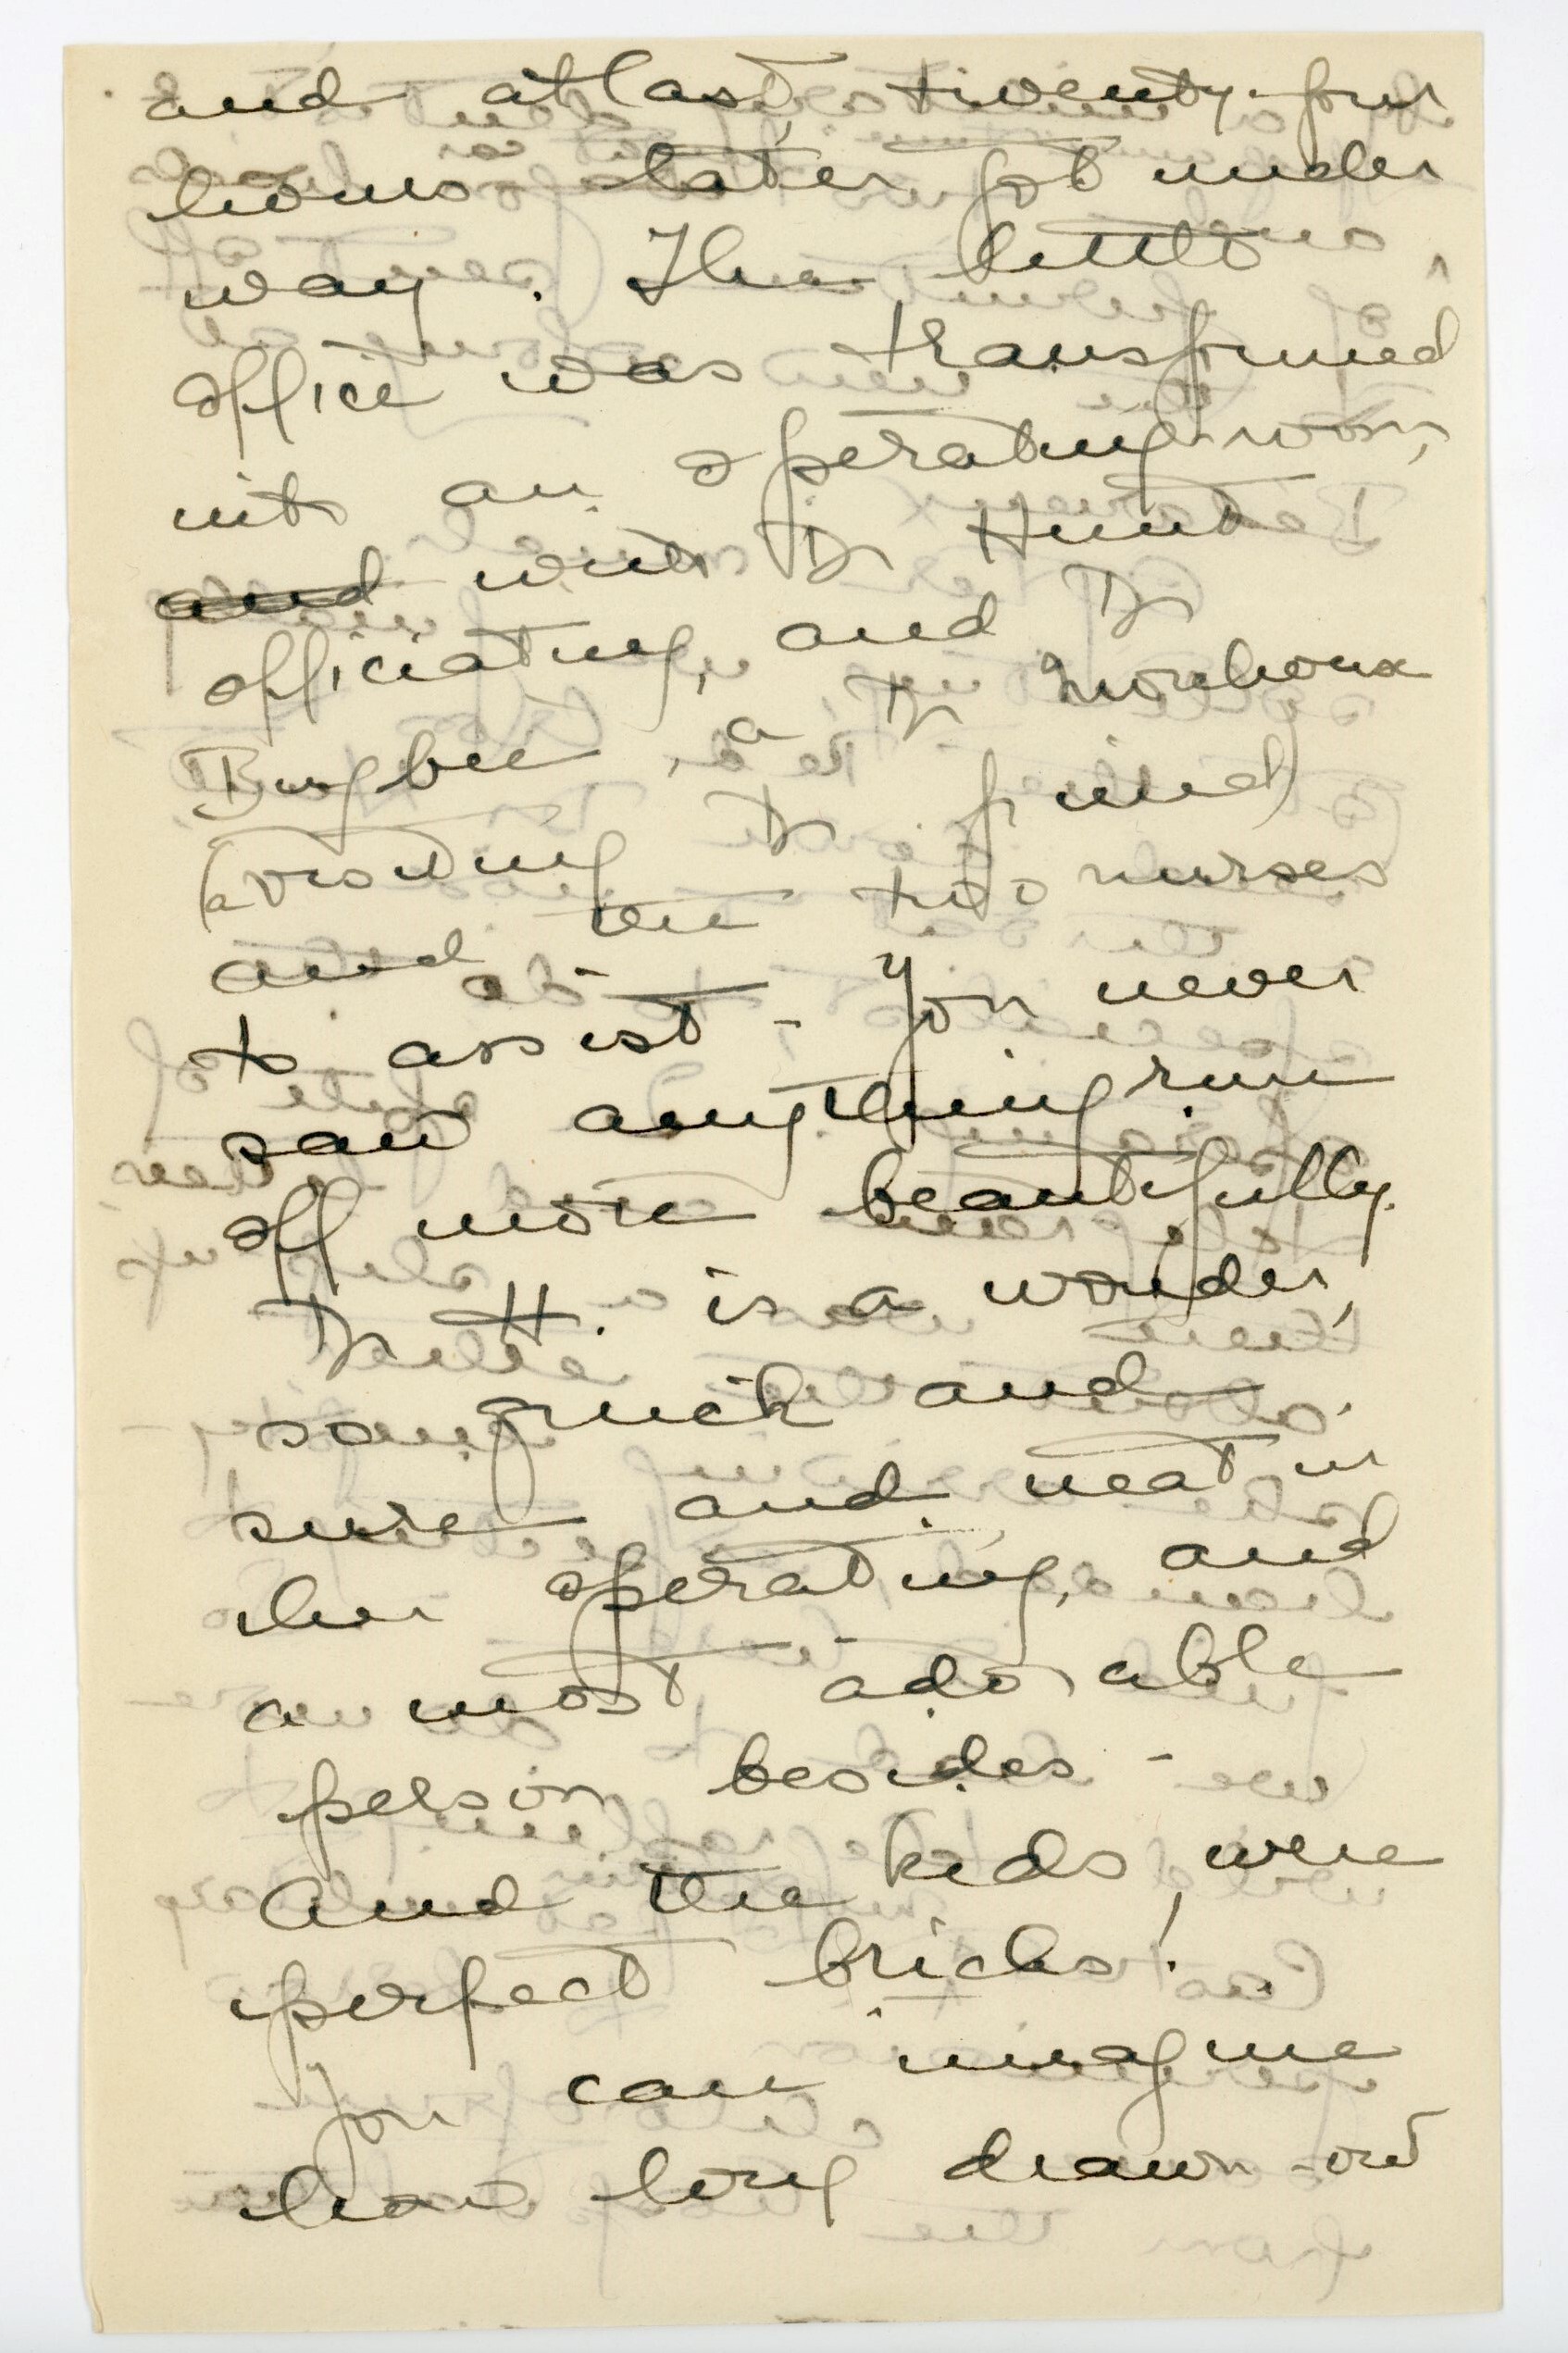 and at last, twenty-four
hours later got under
way. The little
office was transformed
into an operating room,
and with Dr Hunt
officiating, and Dr
Bugbee, a Dr
(a visiting Dr. friend)
and the two nurses
to assist - You never
saw anything run
off more beautifully.
Dr H. is a wonder,
so quick and
sure and neat in
her operating, and
a most adorable
person besides -
And the kids were
perfect bricks!
You can imagine
how long drawn-out